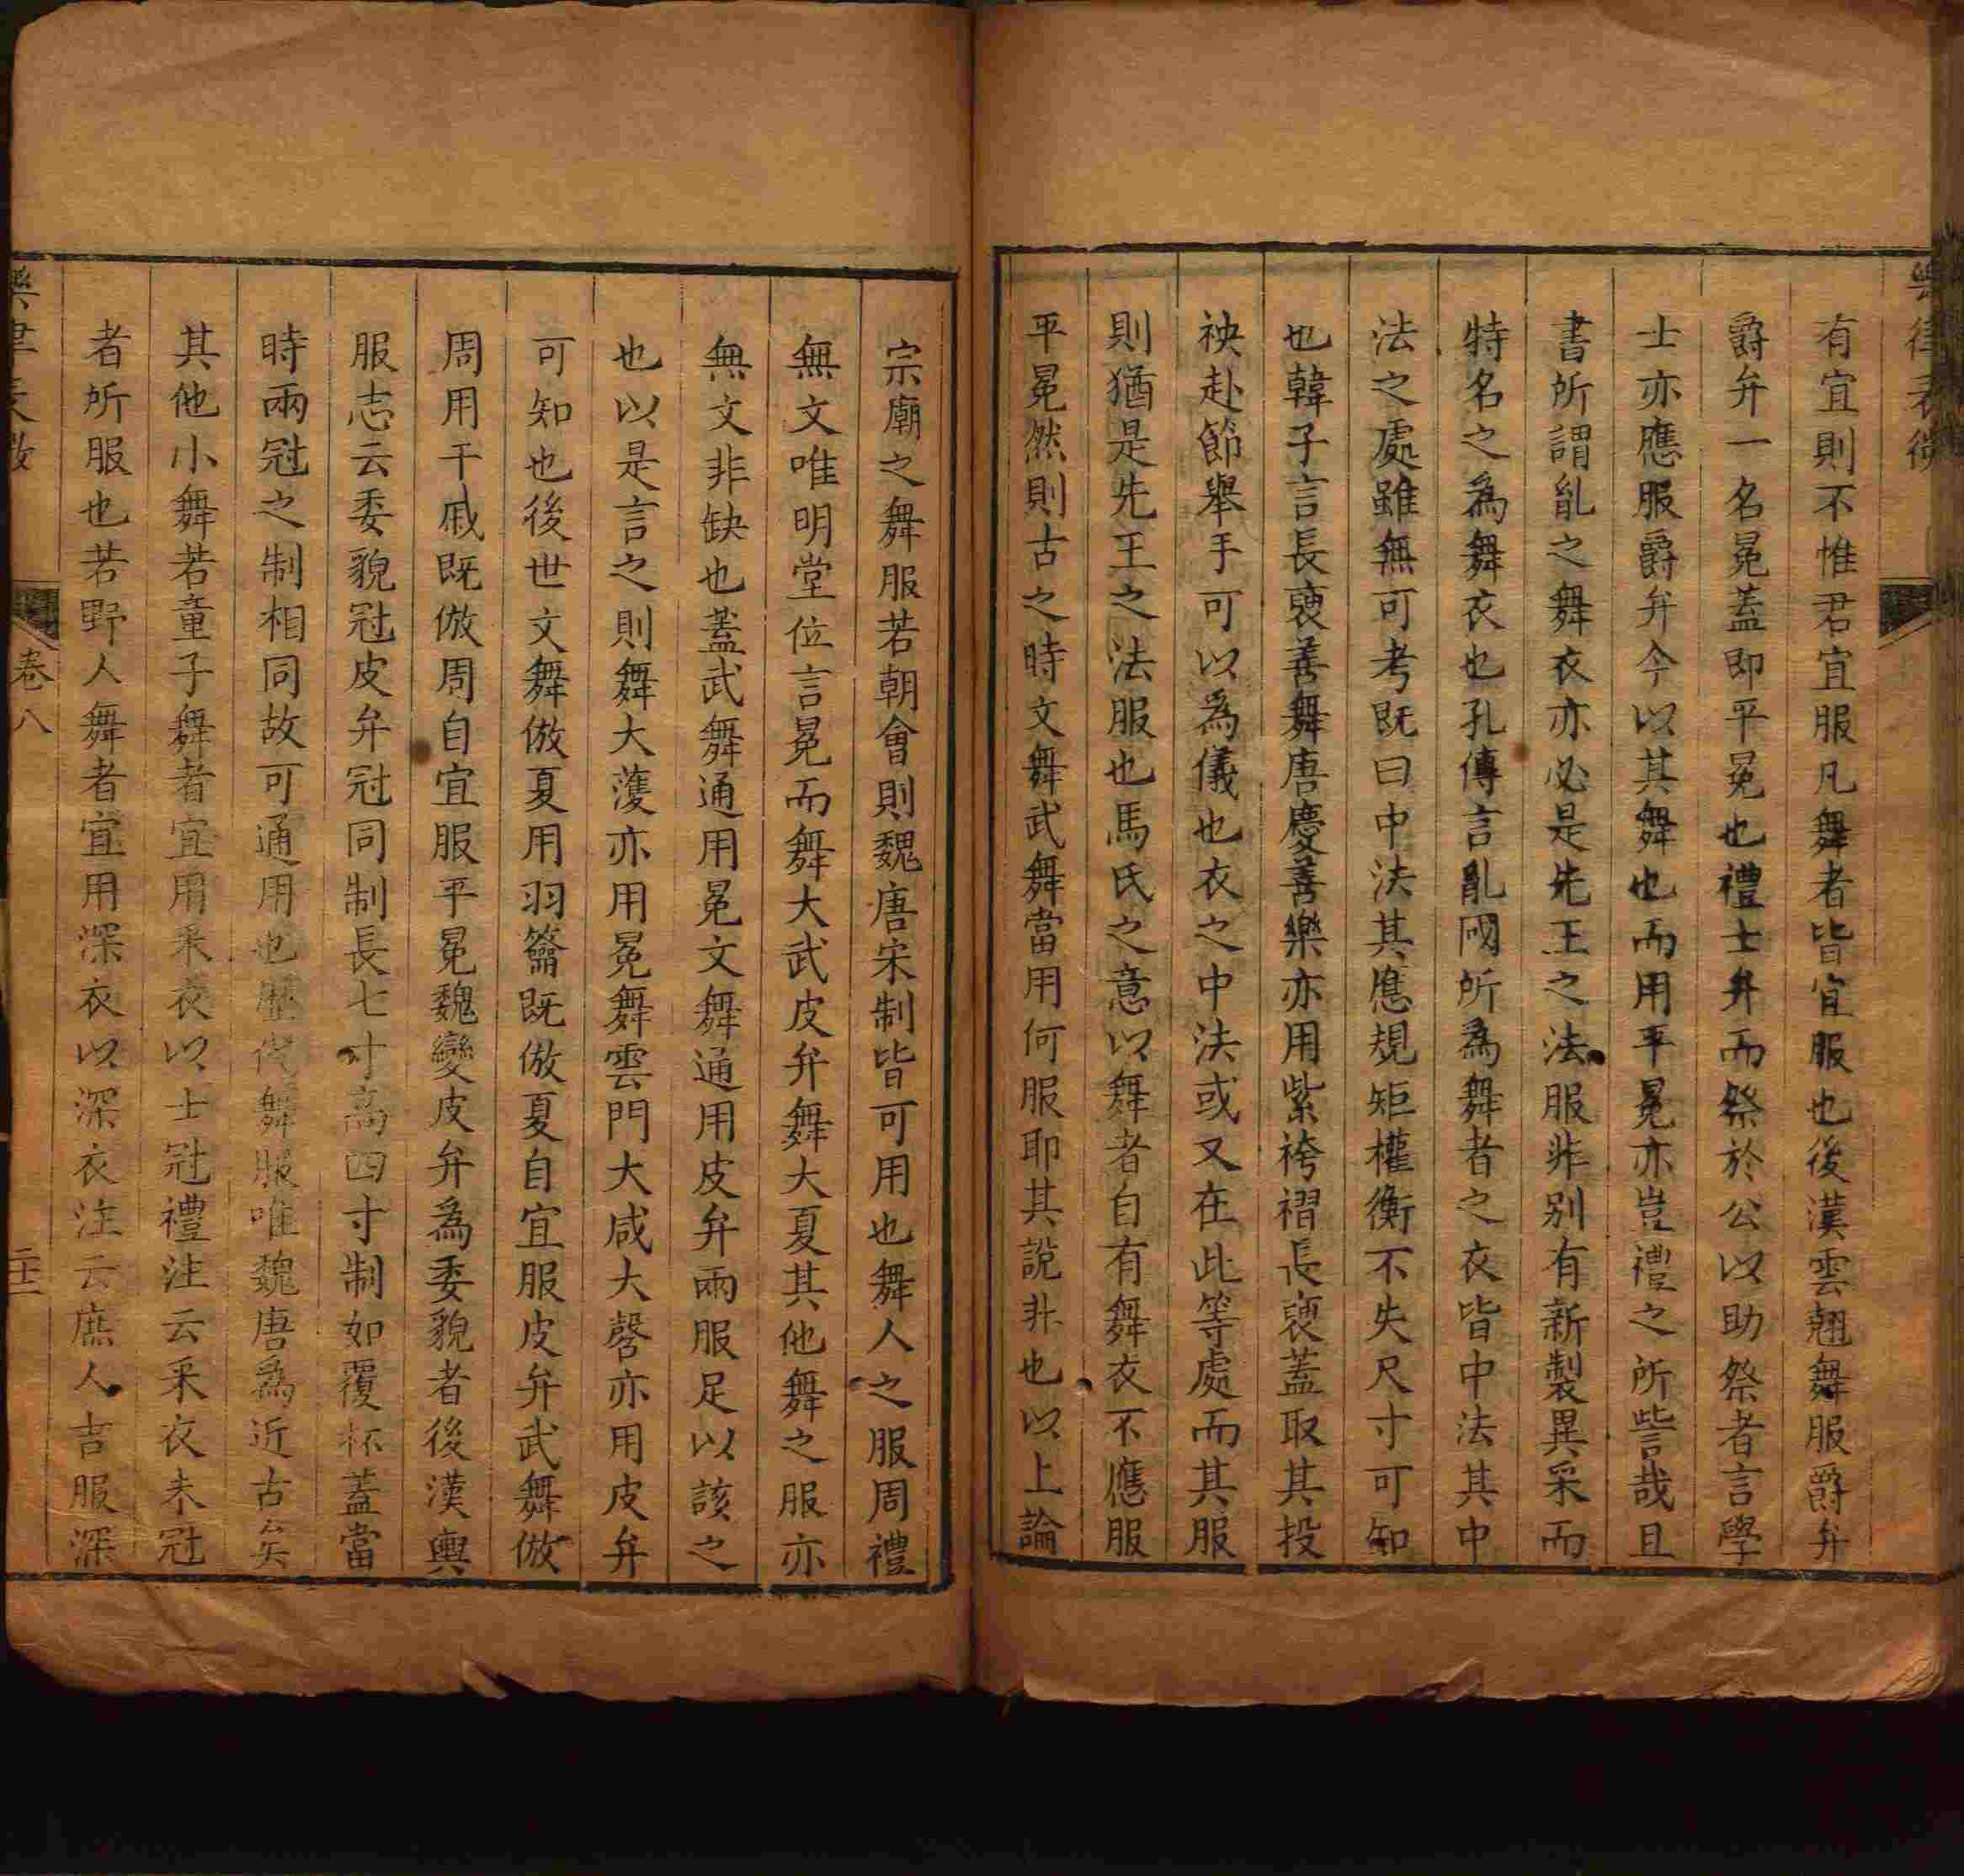 樂律表微
有宜則不惟君宜服凡舞者皆宜服也後漢雲翹舞服爵弁
爵弁一名冕蓋即平冕也禮士弁而祭於公以助祭者言學
士亦應服爵弁今以其舞也而用平冕亦豈禮之所訾哉且
書所謂胤之舞衣亦必是先王之法服非别有新製異采而
特名之為舞衣也孔傳言胤國所為舞者之衣皆中法其中
法之處雖無可考既曰中法其應規矩權衡不失尺寸可知
也韓子言長褎善舞唐慶善樂亦用紫袴褶長褎蓋取其投
袂赴節舉手可以為儀也衣之中法或又在此等處而其服
則猶是先王之法服也馬氏之意以舞者自有舞衣不應服
平冕然則古之時文舞武舞當用何服耶其說非也以上論
宗廟之舞服若朝會則魏唐宋制皆可用也舞人之服周禮
無文唯明堂位言冕而舞大武皮弁舞大夏其他舞之服亦
無文非缺也蓋武舞通用冕文舞通用皮弁兩服足以該之
也以是言之則舞大濩亦用冕舞雲門大咸大磬亦用皮弁
可知也後世文舞倣夏用羽籥既倣夏自宜服皮弁武舞倣
周用干戚既倣周自宜服平冕魏變皮弁為委貌者後漢輿
服志云委貌冠皮弁冠同制長七寸高四寸制如覆杯蓋當
時兩冠之制相同故可通用也歷代舞服唯魏唐為近古矣
其他小舞若童子舞者宜用采衣以士冠禮注云采衣未冠
者所服也若野人舞者宜用深衣以深衣注云庶人吉服深
樂律表微
卷八
二十二